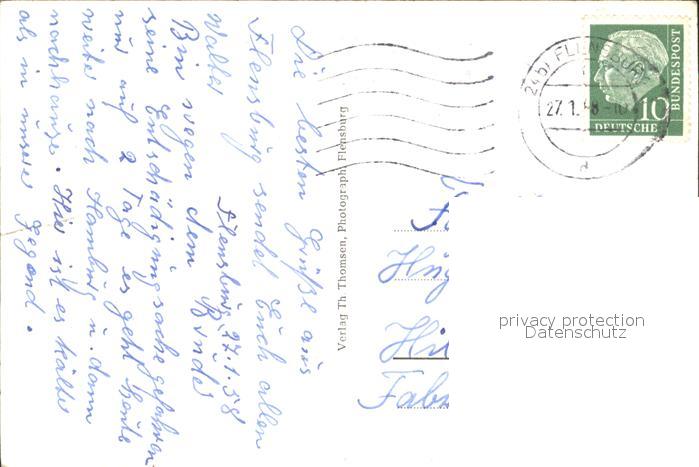 Die besten Grüße aus
Flensburg sendet Euch allen
Walter
Flensburg, 27.1.58
Bin wegen dem Bruder
seine Entschädigungsache gefahren
nur auf 2 Tage es geht heute
weiter nach Hamburg u. dann
nachhause. Hier ist es kälter
als in unserer Gegend.
Verlag Th Thomsen, Photograph, Flensburg
(24b) FLENSBURG
27. 1. 58 -10
a
10
DEUTSCHE
BUNDESPOST
Hüg
Hi
Fabr
privacy protection
Datenschutz